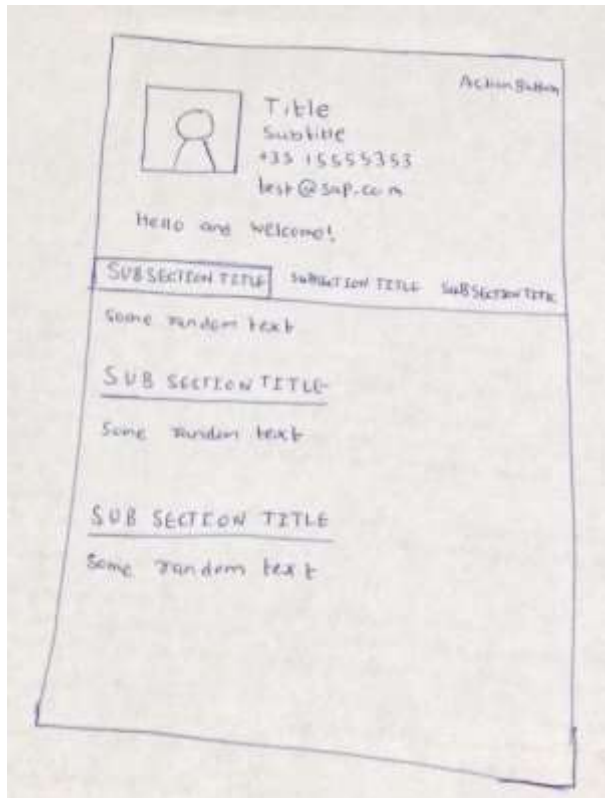 Action Button
Title
Subtitle
+35 15555353
test@sap.com
Hello and welcome!
SUBSECTION TITLE SUBSECTION TITLE SUBSECTION TITLE
Some random text
SUB SECTION TITLE
Some random text
SUB SECTION TITLE
Some random text